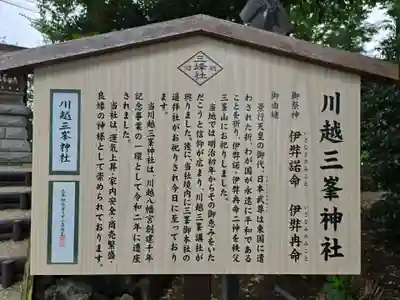 三峰社
川越三峯神社
御祭神　伊弉諾命　伊弉冉命
御由緒
景行天皇の御代、日本武尊は東国に遣
わされた折、わが国が永遠に平和である
ことを祈り、伊弉諾・伊弉冉命二神を秩父
三峯山にお祀りしました。
当地では明治初年からその御恵みをいた
だこうと信仰が広まり、川越三峯講社が
興りました。後に、当社境内に三峯御本社の
遥拝社がお祀りされ今日に至っており
ます。
当川越三峯神社は、川越八幡宮創建千年
記念事業の一環として令和二年に遷座
されました。
当社は、運気上昇・家内安全・商売繁盛・
良縁の神様として崇められております。
川越三峯神社